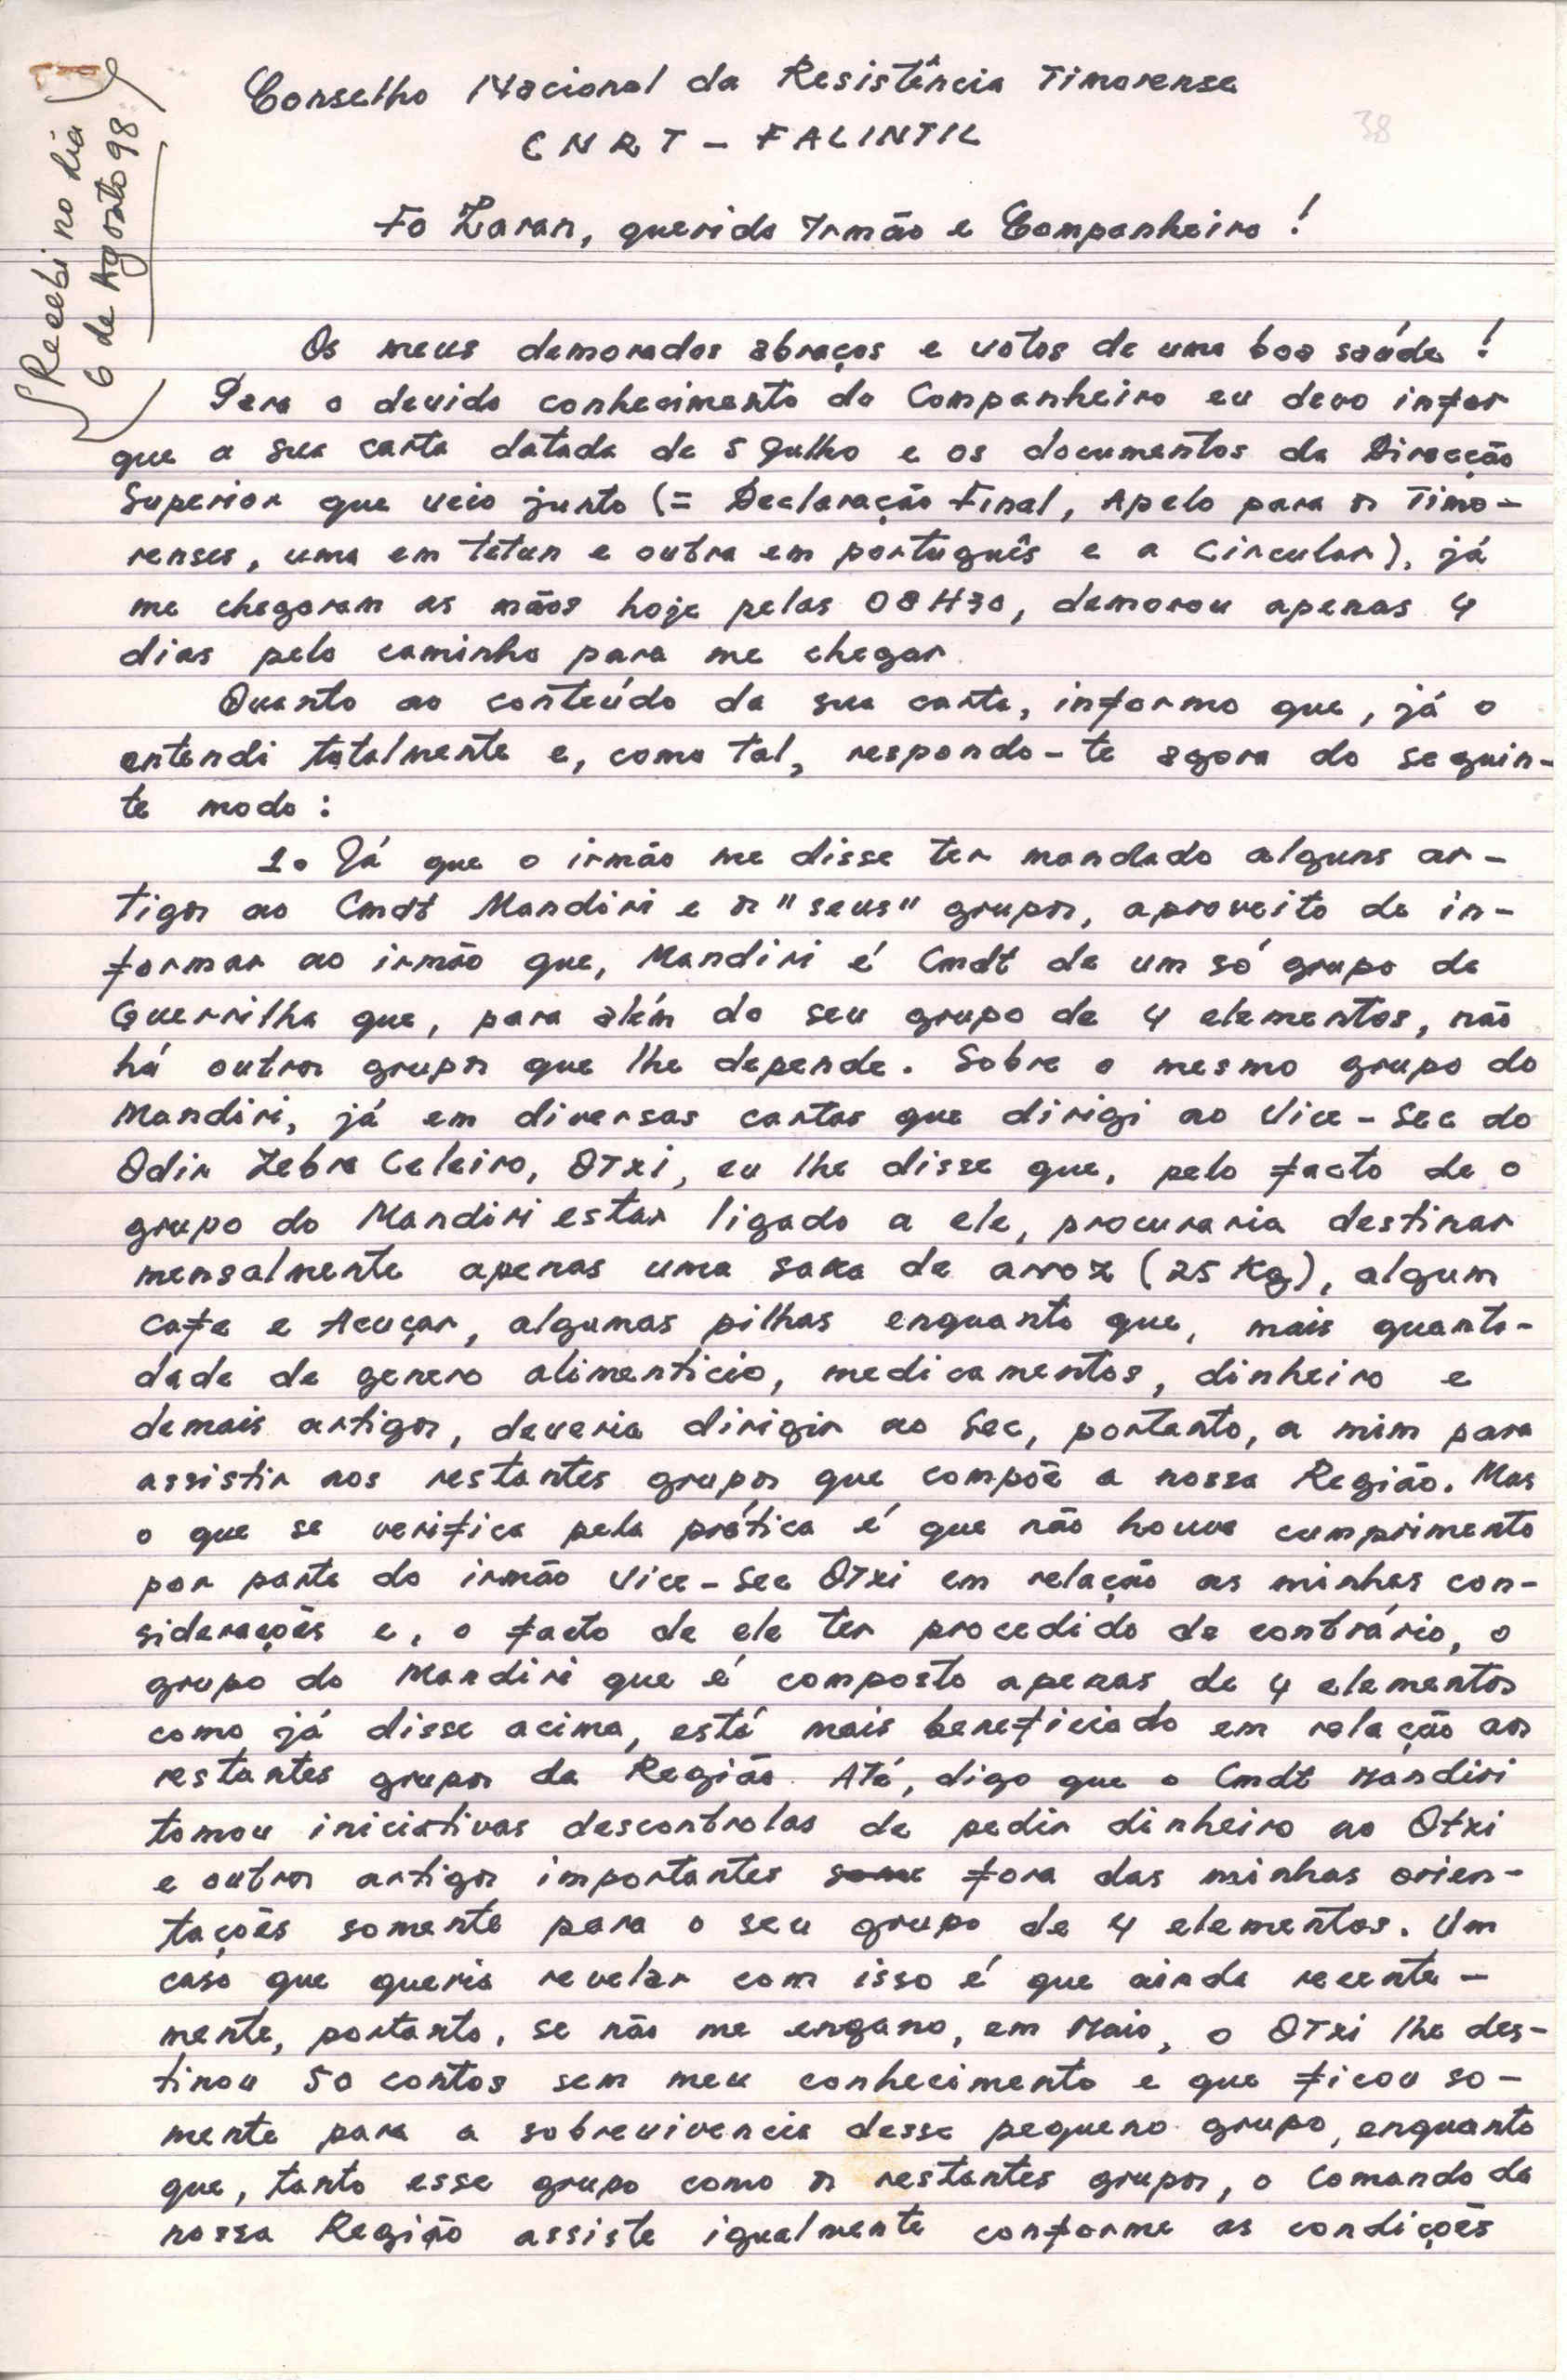 Recebi no dia
6 de Agosto 98
38
Conselho Nacional da Resistência Timorense
CNRT - FALINTIL
Fo Laran, querido Irmão e Companheiro!
Os meus demorados abraços e votos de uma boa saúde!
Para o devido conhecimento do Companheiro eu devo infor
que a sua carta datada de 5 Julho e os documentos da Direcção
Superior que veio junto (= Declaração Final, Apelo para os Timo-
renses, uma em tetun e outra em português e a Circular), já
me chegaram as mãos hoje pelas 08H30, demorou apenas 4
dias pelo caminho para me chegar.
Quanto ao conteúdo da sua carta, informo que, já o
entendi totalmente e, como tal, respondo-te agora do seguin-
te modo:
1. Já que o irmão me disse ter mandado alguns ar-
tigos ao Cmdt Mandiri e os "seus" grupos, aproveito de in-
formar ao irmão que, Mandiri é Cmdt de um só grupo de
Guerrilha que, para além do seu grupo de 4 elementos, não
há outros grupos que lhe depende. Sobre o mesmo grupo do
Mandiri, já em diversas cartas que dirigi ao Vice-Sec do
Odir Zebra Celeiro, OTxi, eu lhe disse que, pelo facto de o
grupo do Mandiri estar ligado a ele, procuraria destinar
mensalmente apenas uma saka de arroz (25 Kg), algum
cafe e Acuçar, algumas pilhas enquanto que, mais quanti-
dade de genero alimenticio, medicamentos, dinheiro e
demais artigos, deveria dirigir ao Sec, portanto, a mim para
assistir aos restantes grupos que compõe a nossa Região. Mas
o que se verifica pela prática é que não houve cumprimento
por parte do irmão Vice-Sec OTxi em relação as minhas con-
siderações e, o facto de ele ter procedido de contrário, o
grupo do Mandiri que é composto apenas de 4 elementos
como já disse acima, está mais beneficiado em relação aos
restantes grupos da Região. Até, digo que o Cmdt Mandiri
tomou iniciativas descontrolas de pedir dinheiro ao Otxi
e outros artigos importantes fora das minhas orien-
tações somente para o seu grupo de 4 elementos. Um
caso que queria revelar com isso é que ainda recente-
mente, portanto, se não me engano, em Maio, o OTxi lhe des-
tinou 50 contos sem meu conhecimento e que ficou so-
mente para a sobrevivencia desse pequeno grupo, enquanto
que, tanto esse grupo como os restantes grupos, o Comando da
nossa Região assiste igualmente conforme as condições